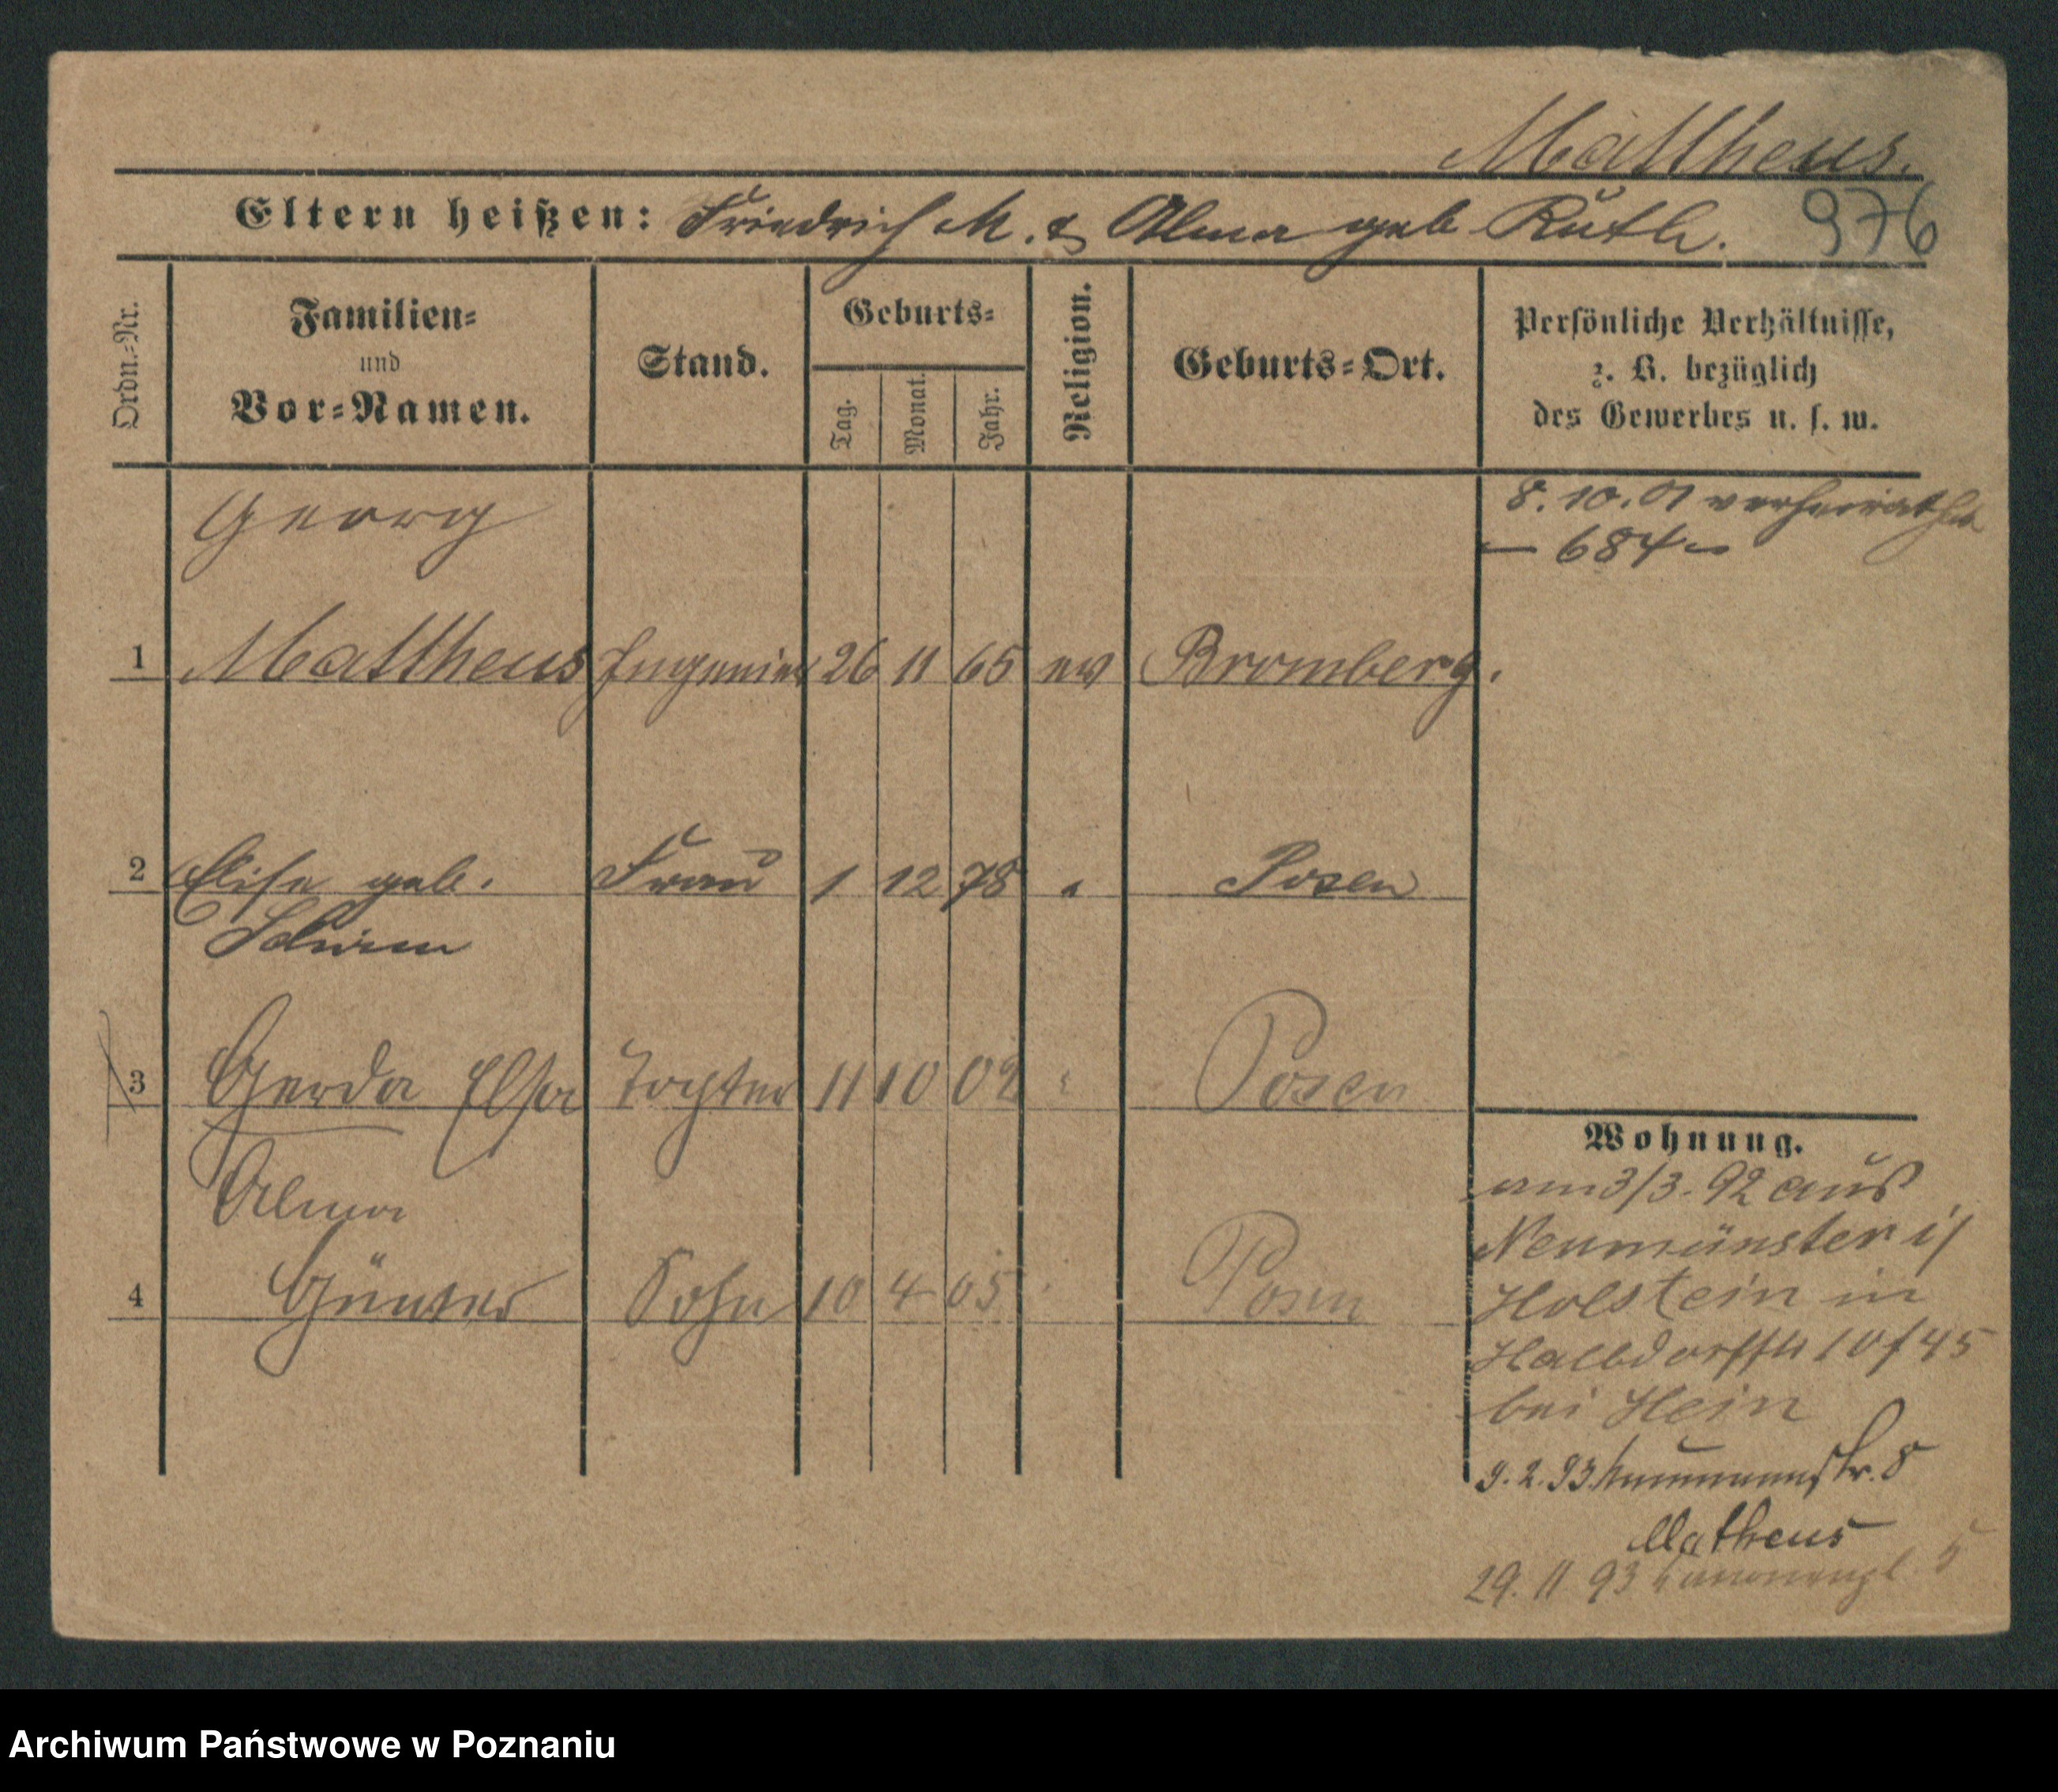 Mattheus.
Eltern heißen: Friedrich M. & Alma geb Ruth. 976
Ordn.-Nr.
Familien-
und
Vor-Namen.
Stand.
Geburts-
Tag.
Monat.
Jahr.
Religion.
Geburts-Ort.
Persönliche Verhältnisse,
z. B. bezüglich
des Gewerbes u. s. w.
8. 10. 01 verheirathet
— 684 —
Georg
1 Mattheus Ingenieur 26 11 65 ev Bromberg.
2 Elise geb. Frau 1 12 78 " Posen
Schirm
3 Gerda Elsa Tochter 11 10 02 " Posen
Alma
4 Günter Sohn 10 4 05 Posen
Wohnung.
am 3/3. 92 aus
Neumünster i/
Holstein in
Halbdorfstr 10 f 45
bei Hein
9. 2. 93. 8
Matheus
29. 11 93 Kanonenpl. 5
Archiwum Państwowe w Poznaniu